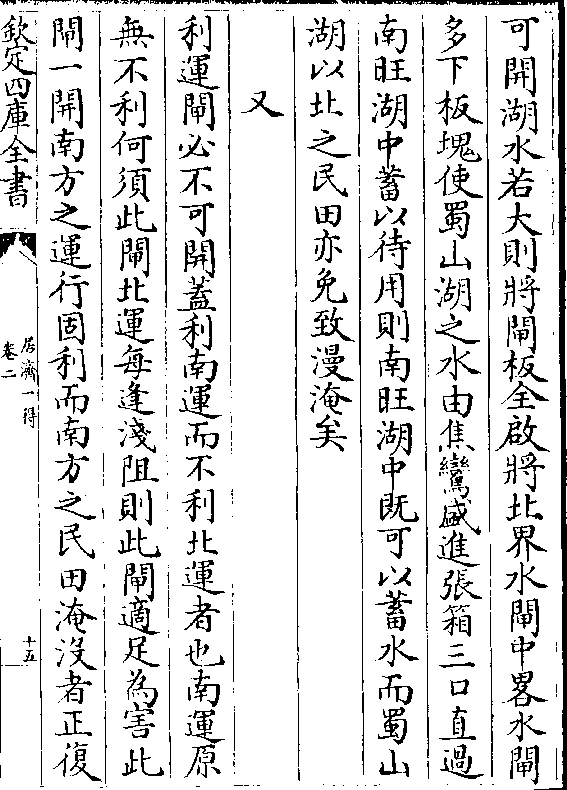 可開湖水若大則將閘板全啟將北界水閘中畧水閘
多下板塊使蜀山湖之水由焦鸞盛進張箱三口直過
南旺湖中蓄以待用則南旺湖中既可以蓄水而蜀山
湖以北之民田亦免致漫淹矣
又
利運閘必不可開蓋利南運而不利北運者也南運原
無不利何須此閘北運每逢淺阻則此閘適足為害此
閘一開南方之運行固利而南方之民田淹沒者正復
欽定四庫全書
居濟一得
卷二
十五